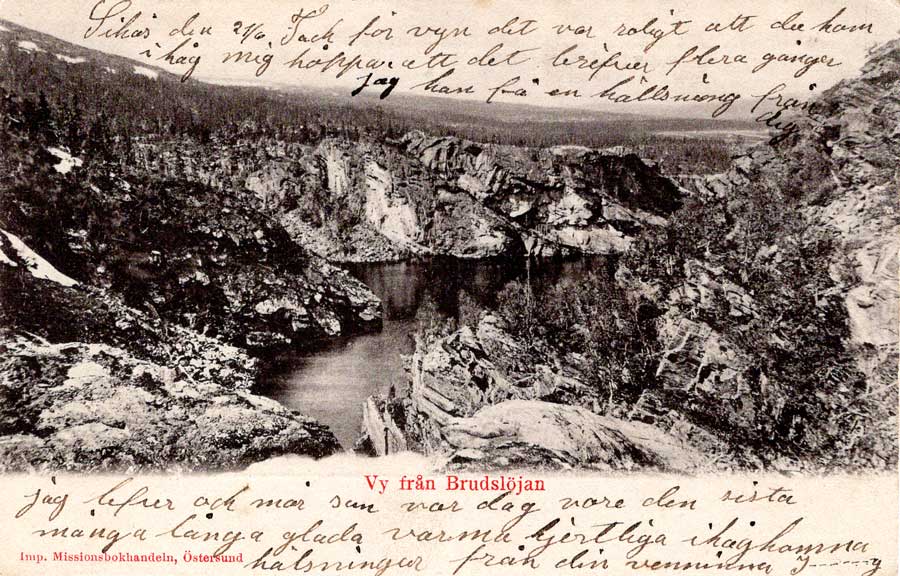 Sikås den 2%6 Tack för vyn det var roligt att du kom
ihåg mig höppar att det brefver flera gånger
jag han få en hällsning från
dig
Vy från Brudslöjan
jag lefver och mår sun var dag vore den sista
många långa glada varma hjertliga ihåghomna
Imp. Missionsbokhandeln, Östersund
hälsningar från din venninna J------g